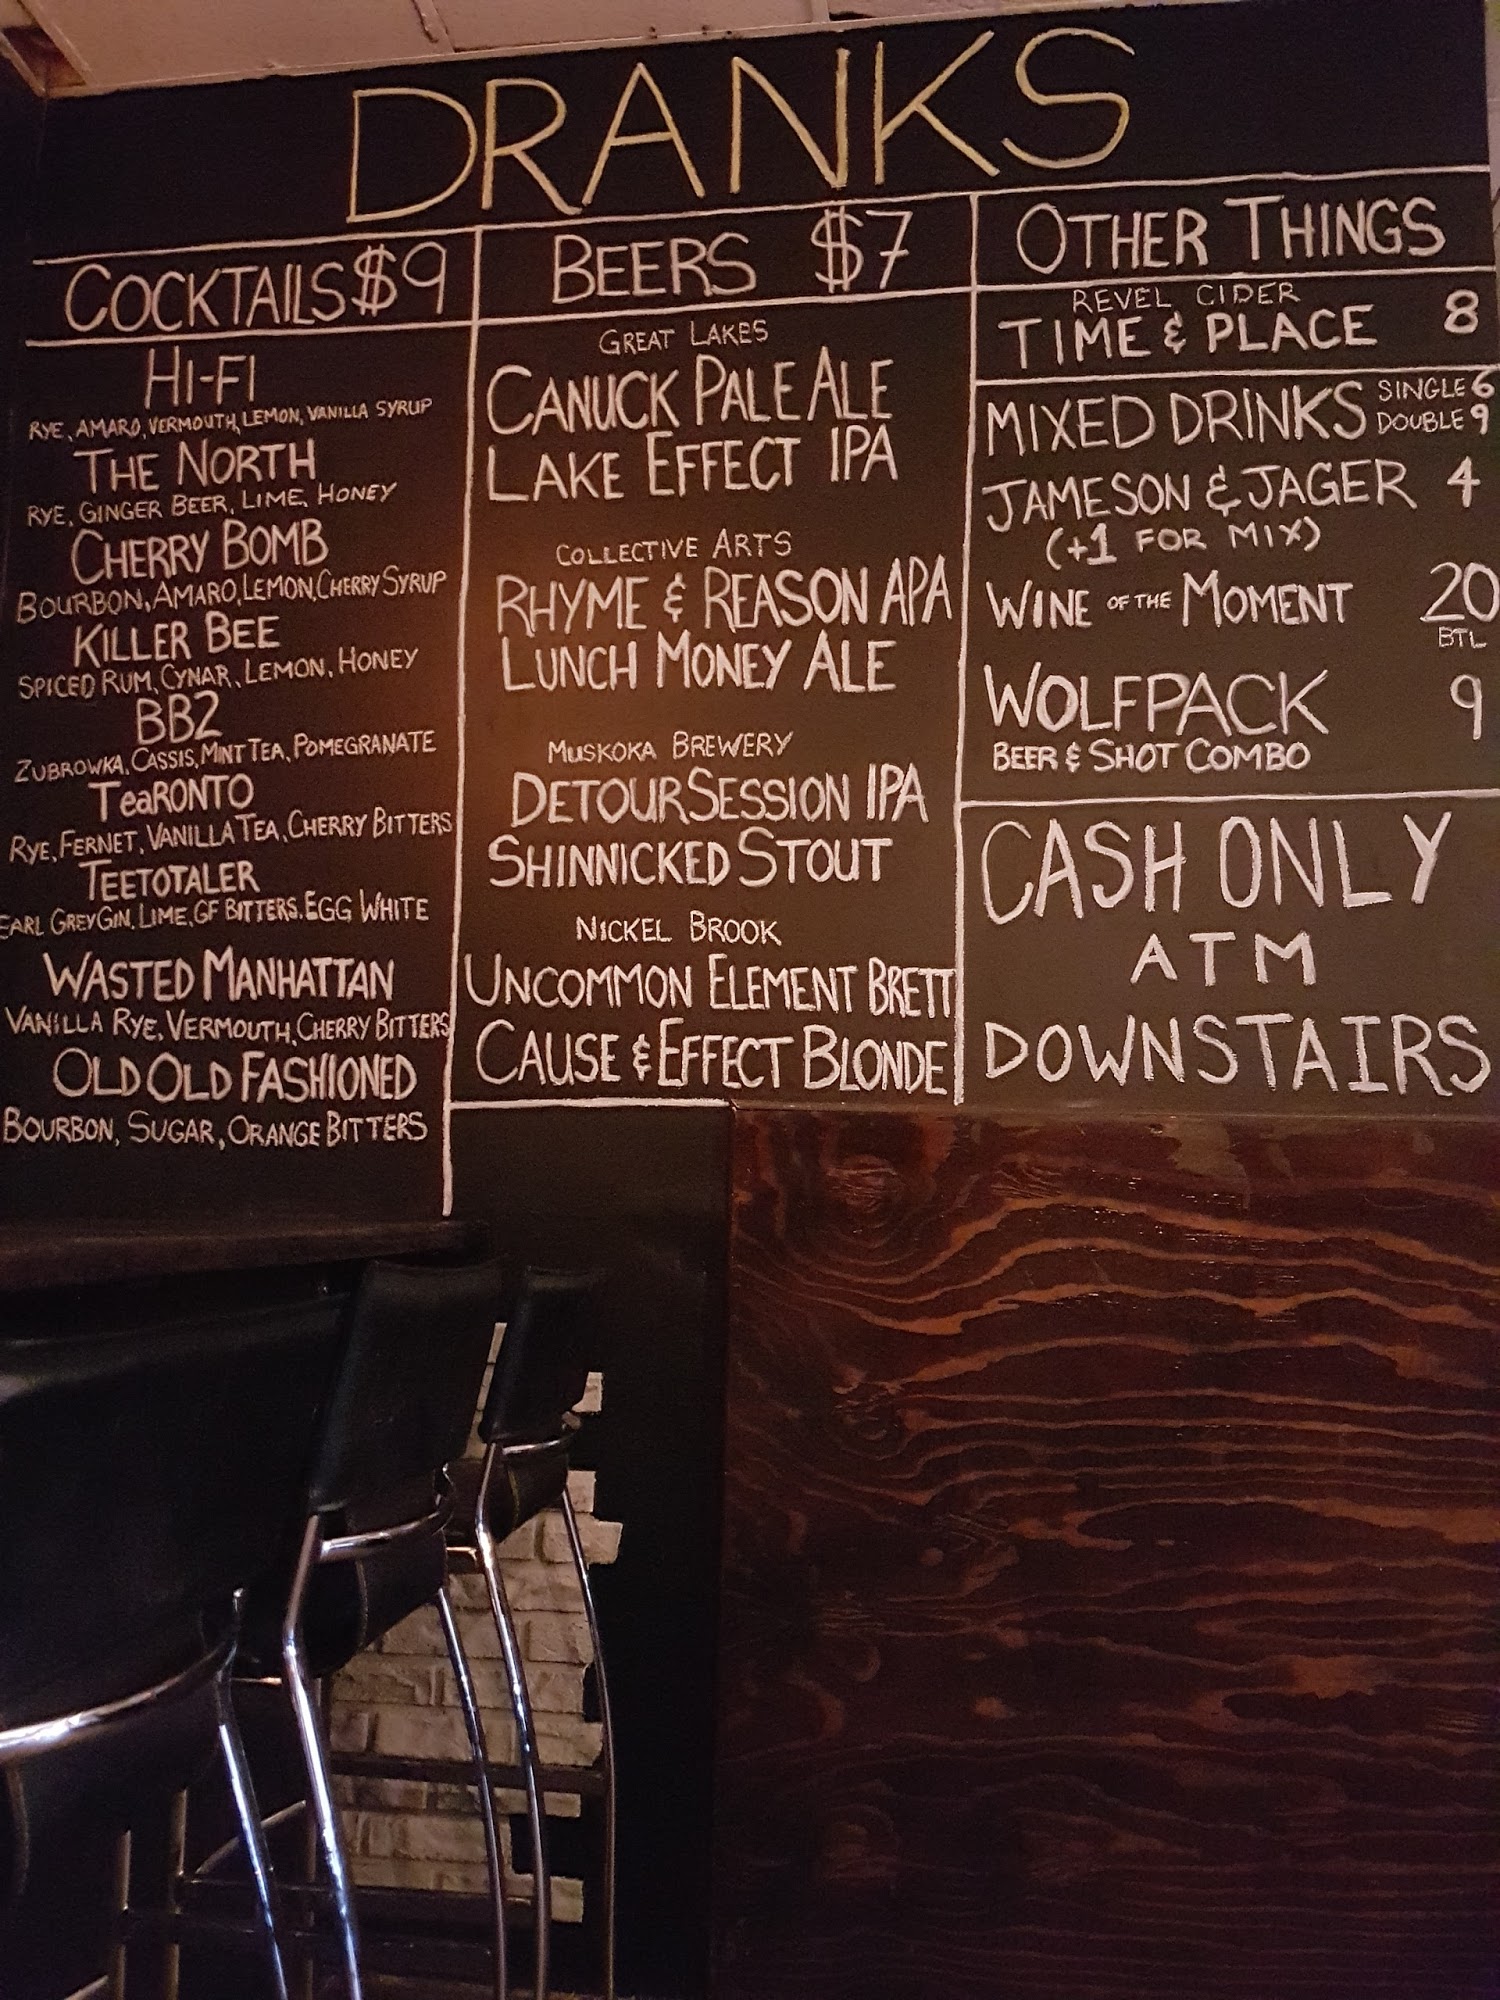 DRANKS
COCKTAILS $9
HI-FI
RYE, AMARO, VERMOUTH, LEMON, VANILLA SYRUP
THE NORTH
RYE, GINGER BEER, LIME, HONEY
CHERRY BOMB
BOURBON, AMARO, LEMON, CHERRY SYRUP
KILLER BEE
SPICED RUM, CYNAR, LEMON, HONEY
BB2
ZUBROWKA, CASSIS, MINT TEA, POMEGRANATE
TeaRONTO
RYE, FERNET, VANILLA TEA, CHERRY BITTERS
TEETOTALER
EARL GREY GIN, LIME, GF BITTERS, EGG WHITE
WASTED MANHATTAN
VANILLA RYE, VERMOUTH, CHERRY BITTERS
OLD OLD FASHIONED
BOURBON, SUGAR, ORANGE BITTERS
BEERS $7
GREAT LAKES
CANUCK PALE ALE
LAKE EFFECT IPA
COLLECTIVE ARTS
RHYME & REASON APA
LUNCH MONEY ALE
MUSKOKA BREWERY
DETOUR SESSION IPA
SHINNICKED STOUT
NICKEL BROOK
UNCOMMON ELEMENT BRETT
CAUSE & EFFECT BLONDE
OTHER THINGS
REVEL CIDER
TIME & PLACE 8
MIXED DRINKS SINGLE 6
DOUBLE 9
JAMESON & JAGER 4
(+1 FOR MIX)
WINE OF THE MOMENT 20
BTL
WOLFPACK 9
BEER & SHOT COMBO
CASH ONLY
ATM
DOWNSTAIRS